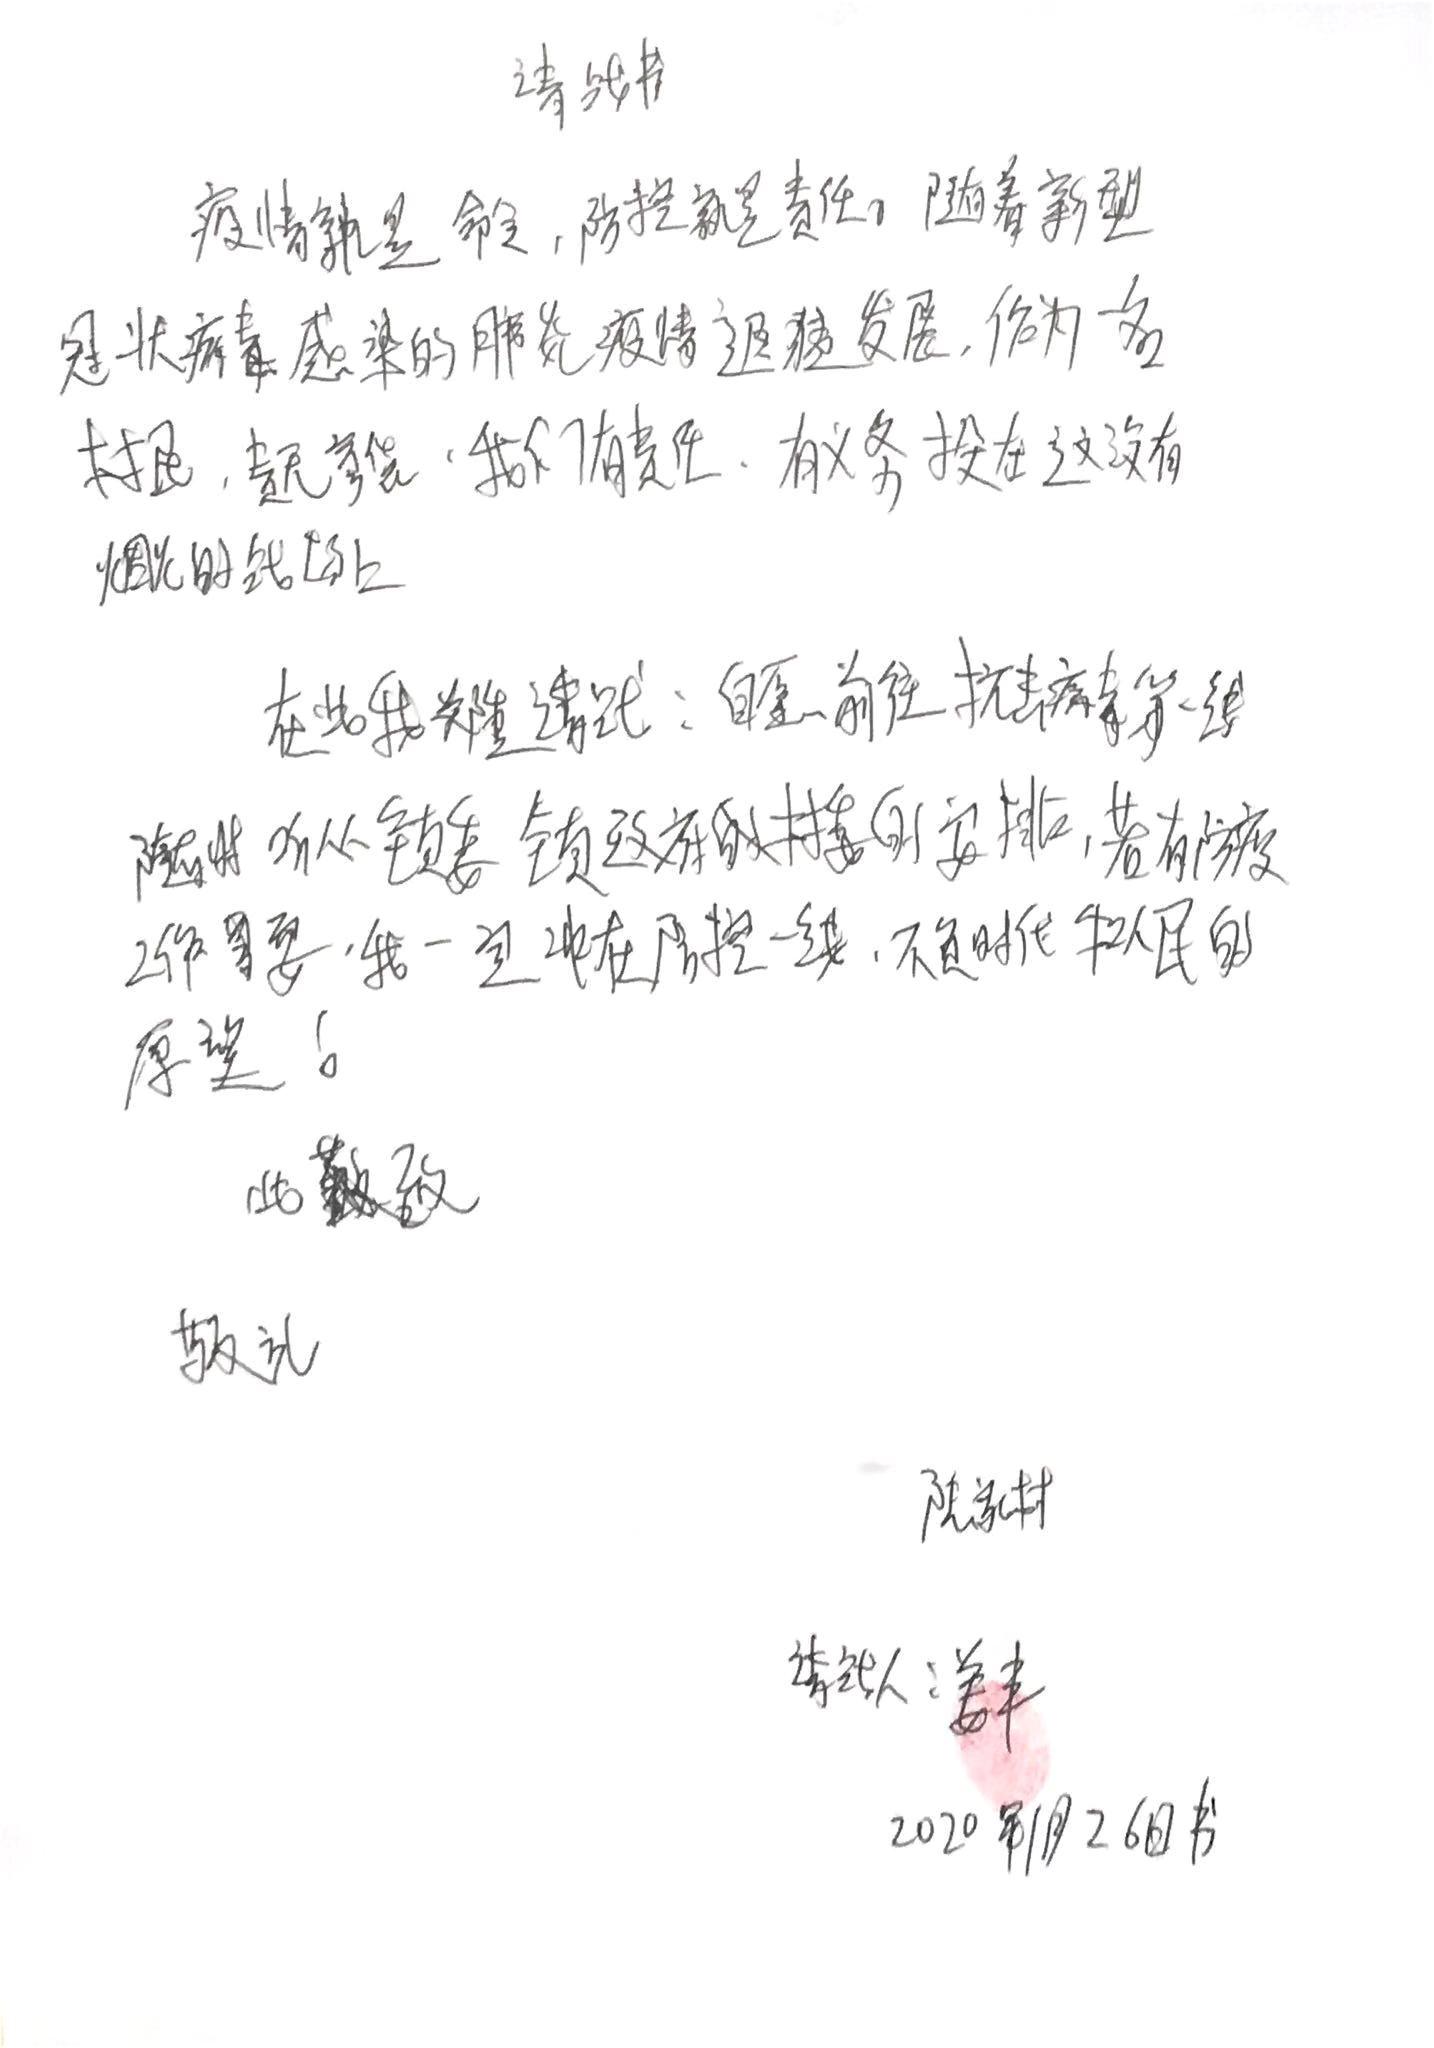 请战书
疫情就是命令，防控就是责任。随着新型
冠状病毒感染的肺炎疫情迅猛发展，作为一名
村民，责无旁贷，我们有责任、有义务投在这没有
烟的战场上
在此我郑重请战：自愿前往抗击病毒第一线
随时听从镇委镇政府及村委的安排，若有防疫
工作需要，我一定冲在防控一线，不负时代和人民的
愿望！
此致
敬礼
陈家村
请战人：姜丰
2020年1月26日书